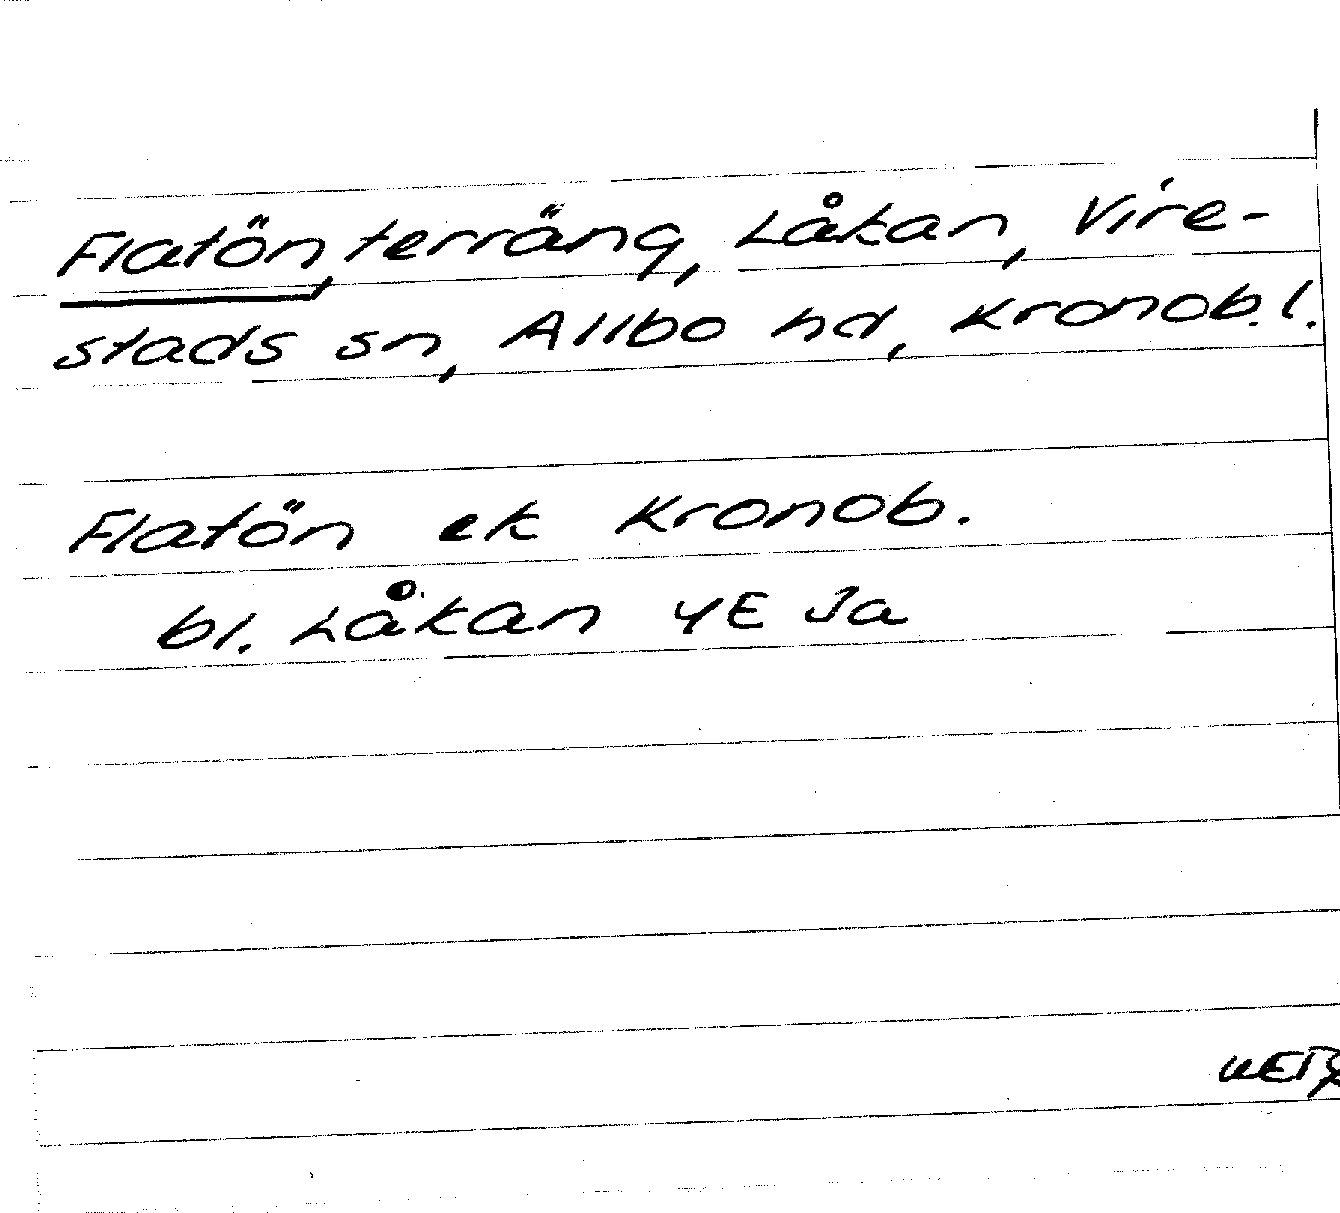 Flatön, terräng, Låkan, Vire-
stads sn, Allbo hd, Kronob. l.
Flatön ek Kronob.
bl. Låkan 4E Ja